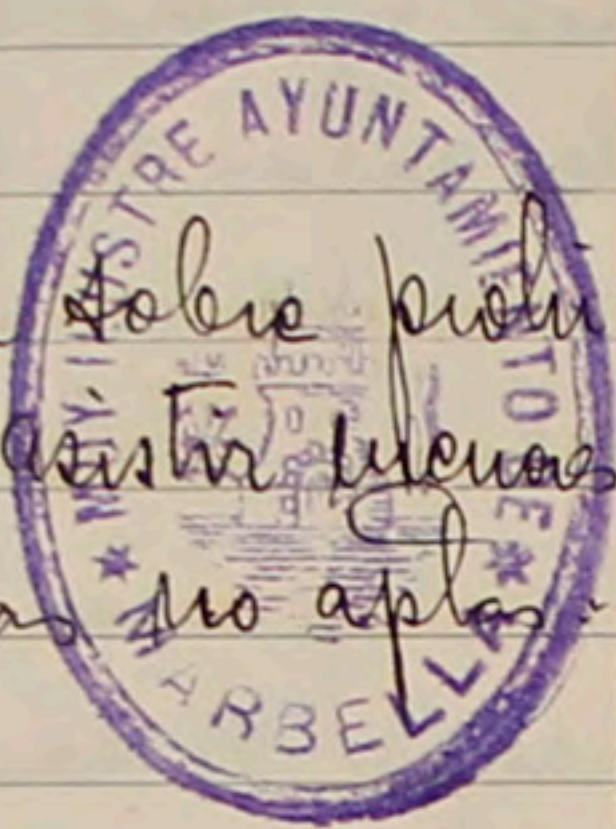 MUY ILUSTRE AYUNTAMIENTO DE
* MARBELLA *
sobre prohi
asistir menores
no aptas.